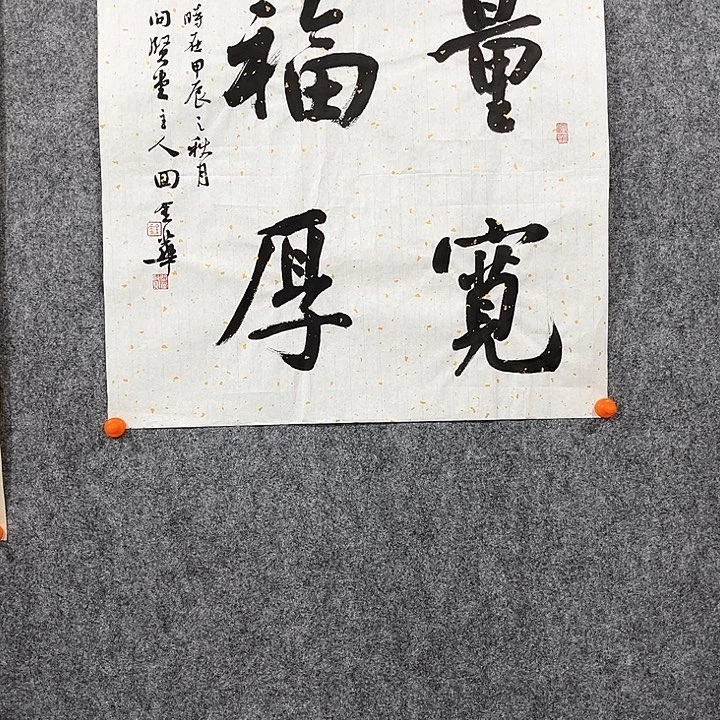 量寬
福厚
時在甲辰之秋月
问贤堂主人田金華